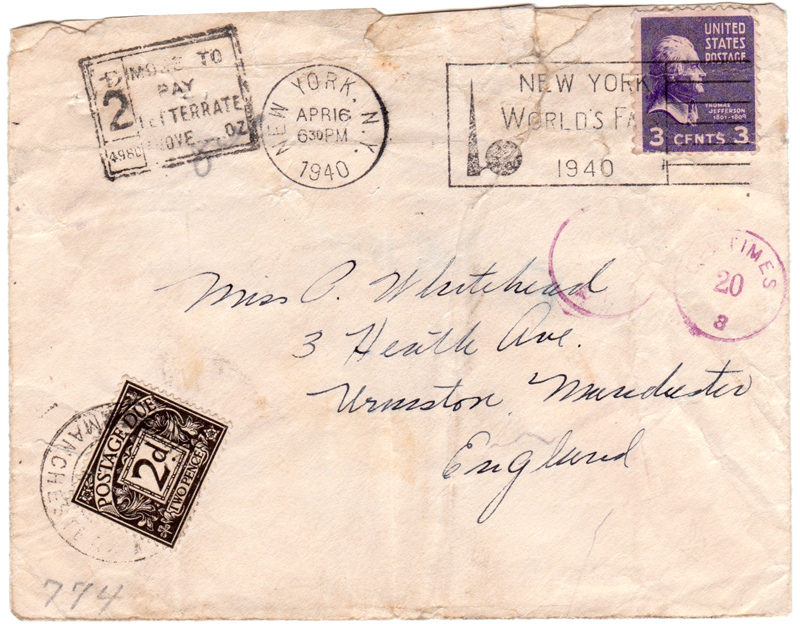 2D
MORE TO
PAY
LETTER RATE
ABOVE OZ
498
NEW YORK, N.Y.
APR 16
630 PM
1940
NEW YORK
WORLD'S FA
1940
UNITED
STATES
POSTAGE
THOMAS
JEFFERSON
1801-1809
3 CENTS 3
TIMES
20
a
Miss P. Whitehead
3 Heath Ave.
Urmston Manchester
England
POSTAGE DUE
2d.
TWO PENCE
MANCHES
774